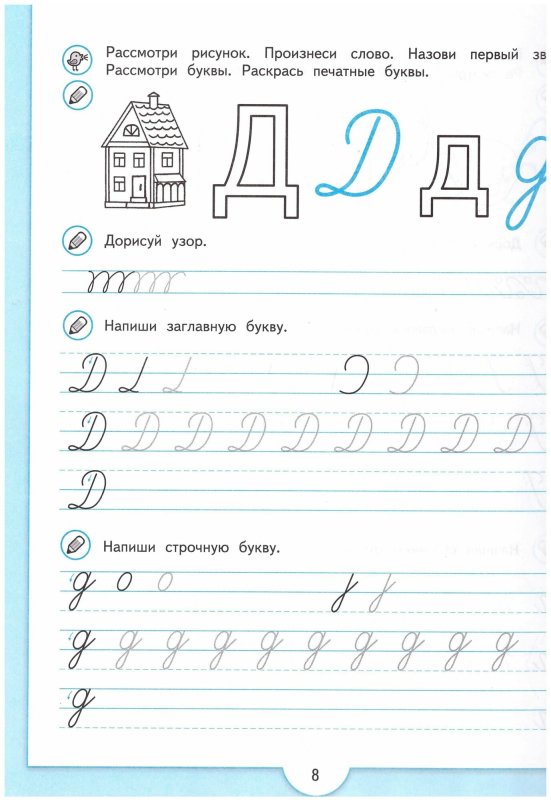 Рассмотри рисунок. Произнеси слово. Назови первый зв
Рассмотри буквы. Раскрась печатные буквы.
Д Д д д
Дорисуй узор.
Напиши заглавную букву.
Д
Д Д Д Д Д Д Д Д Д
Д
Напиши строчную букву.
д
д д д д д д д д д д
д
8